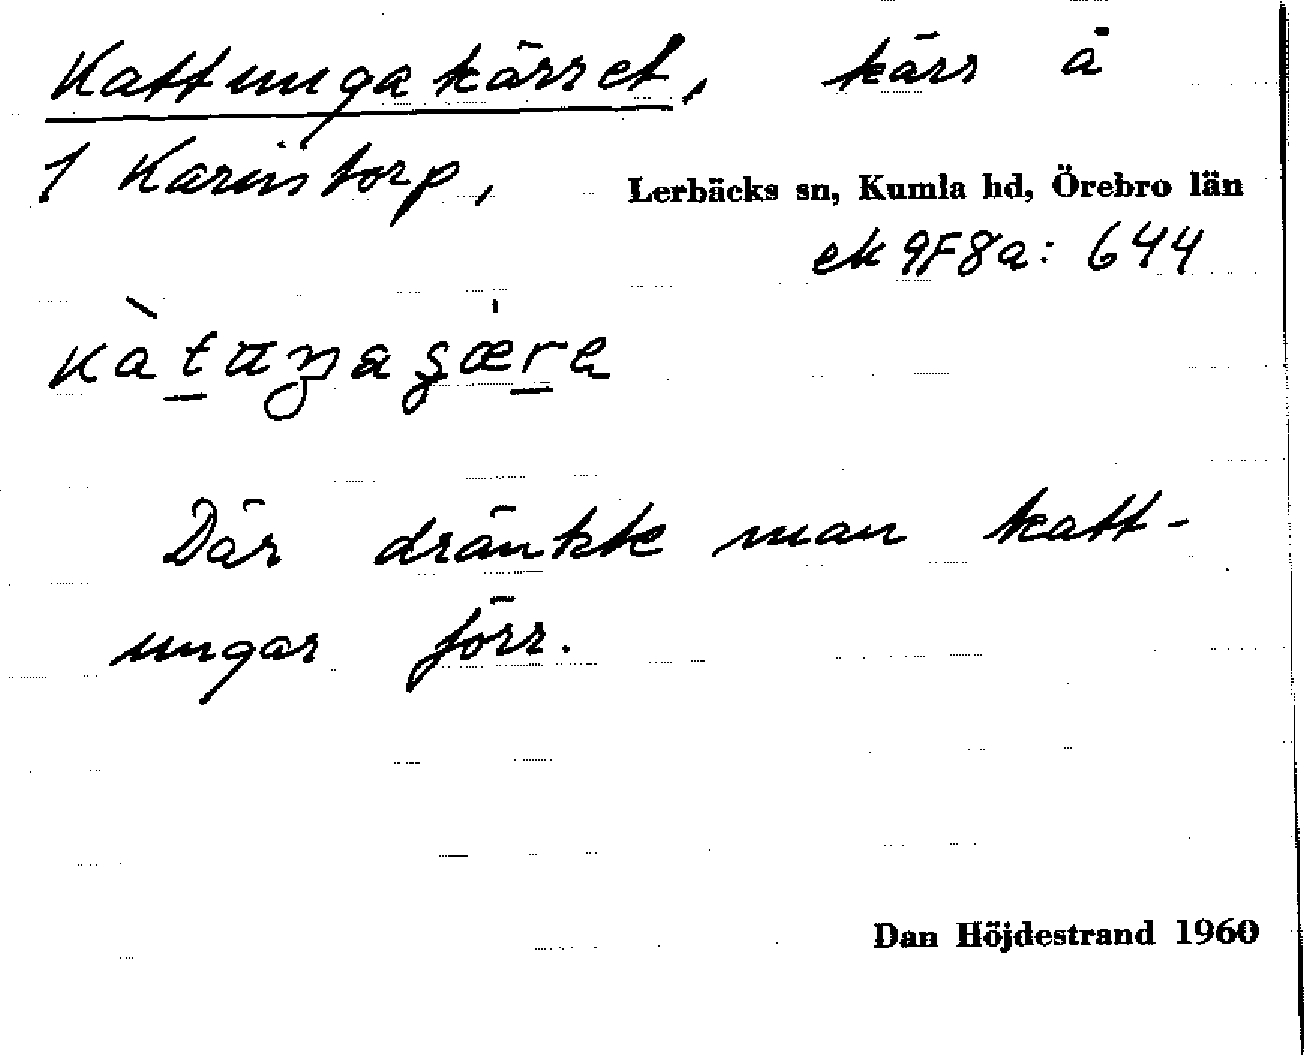 Kattungakärret, kärr å
1 Karinstorp, Lerbäcks sn, Kumla hd, Örebro län
ek 9F8a: 644
Där dränkte man katt-
ungar förr.
Dan Höjdestrand 1960